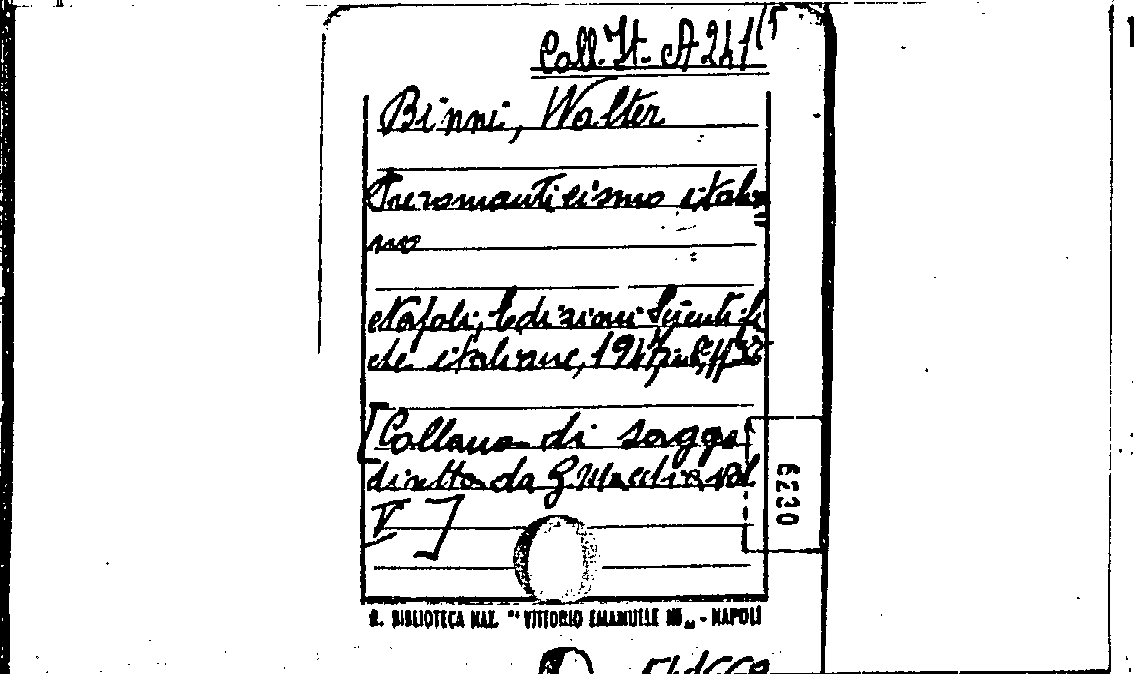 Coll. It. A 241(5
Binni, Walter
Preromanticismo italia
no
Napoli, Edizioni Scientifi
che italiane, 1947,
[Collana di saggi
diretta da G. Macchia, vol.
V]
6230
R. BIBLIOTECA NAZ. "VITTORIO EMANUELE III" - NAPOLI